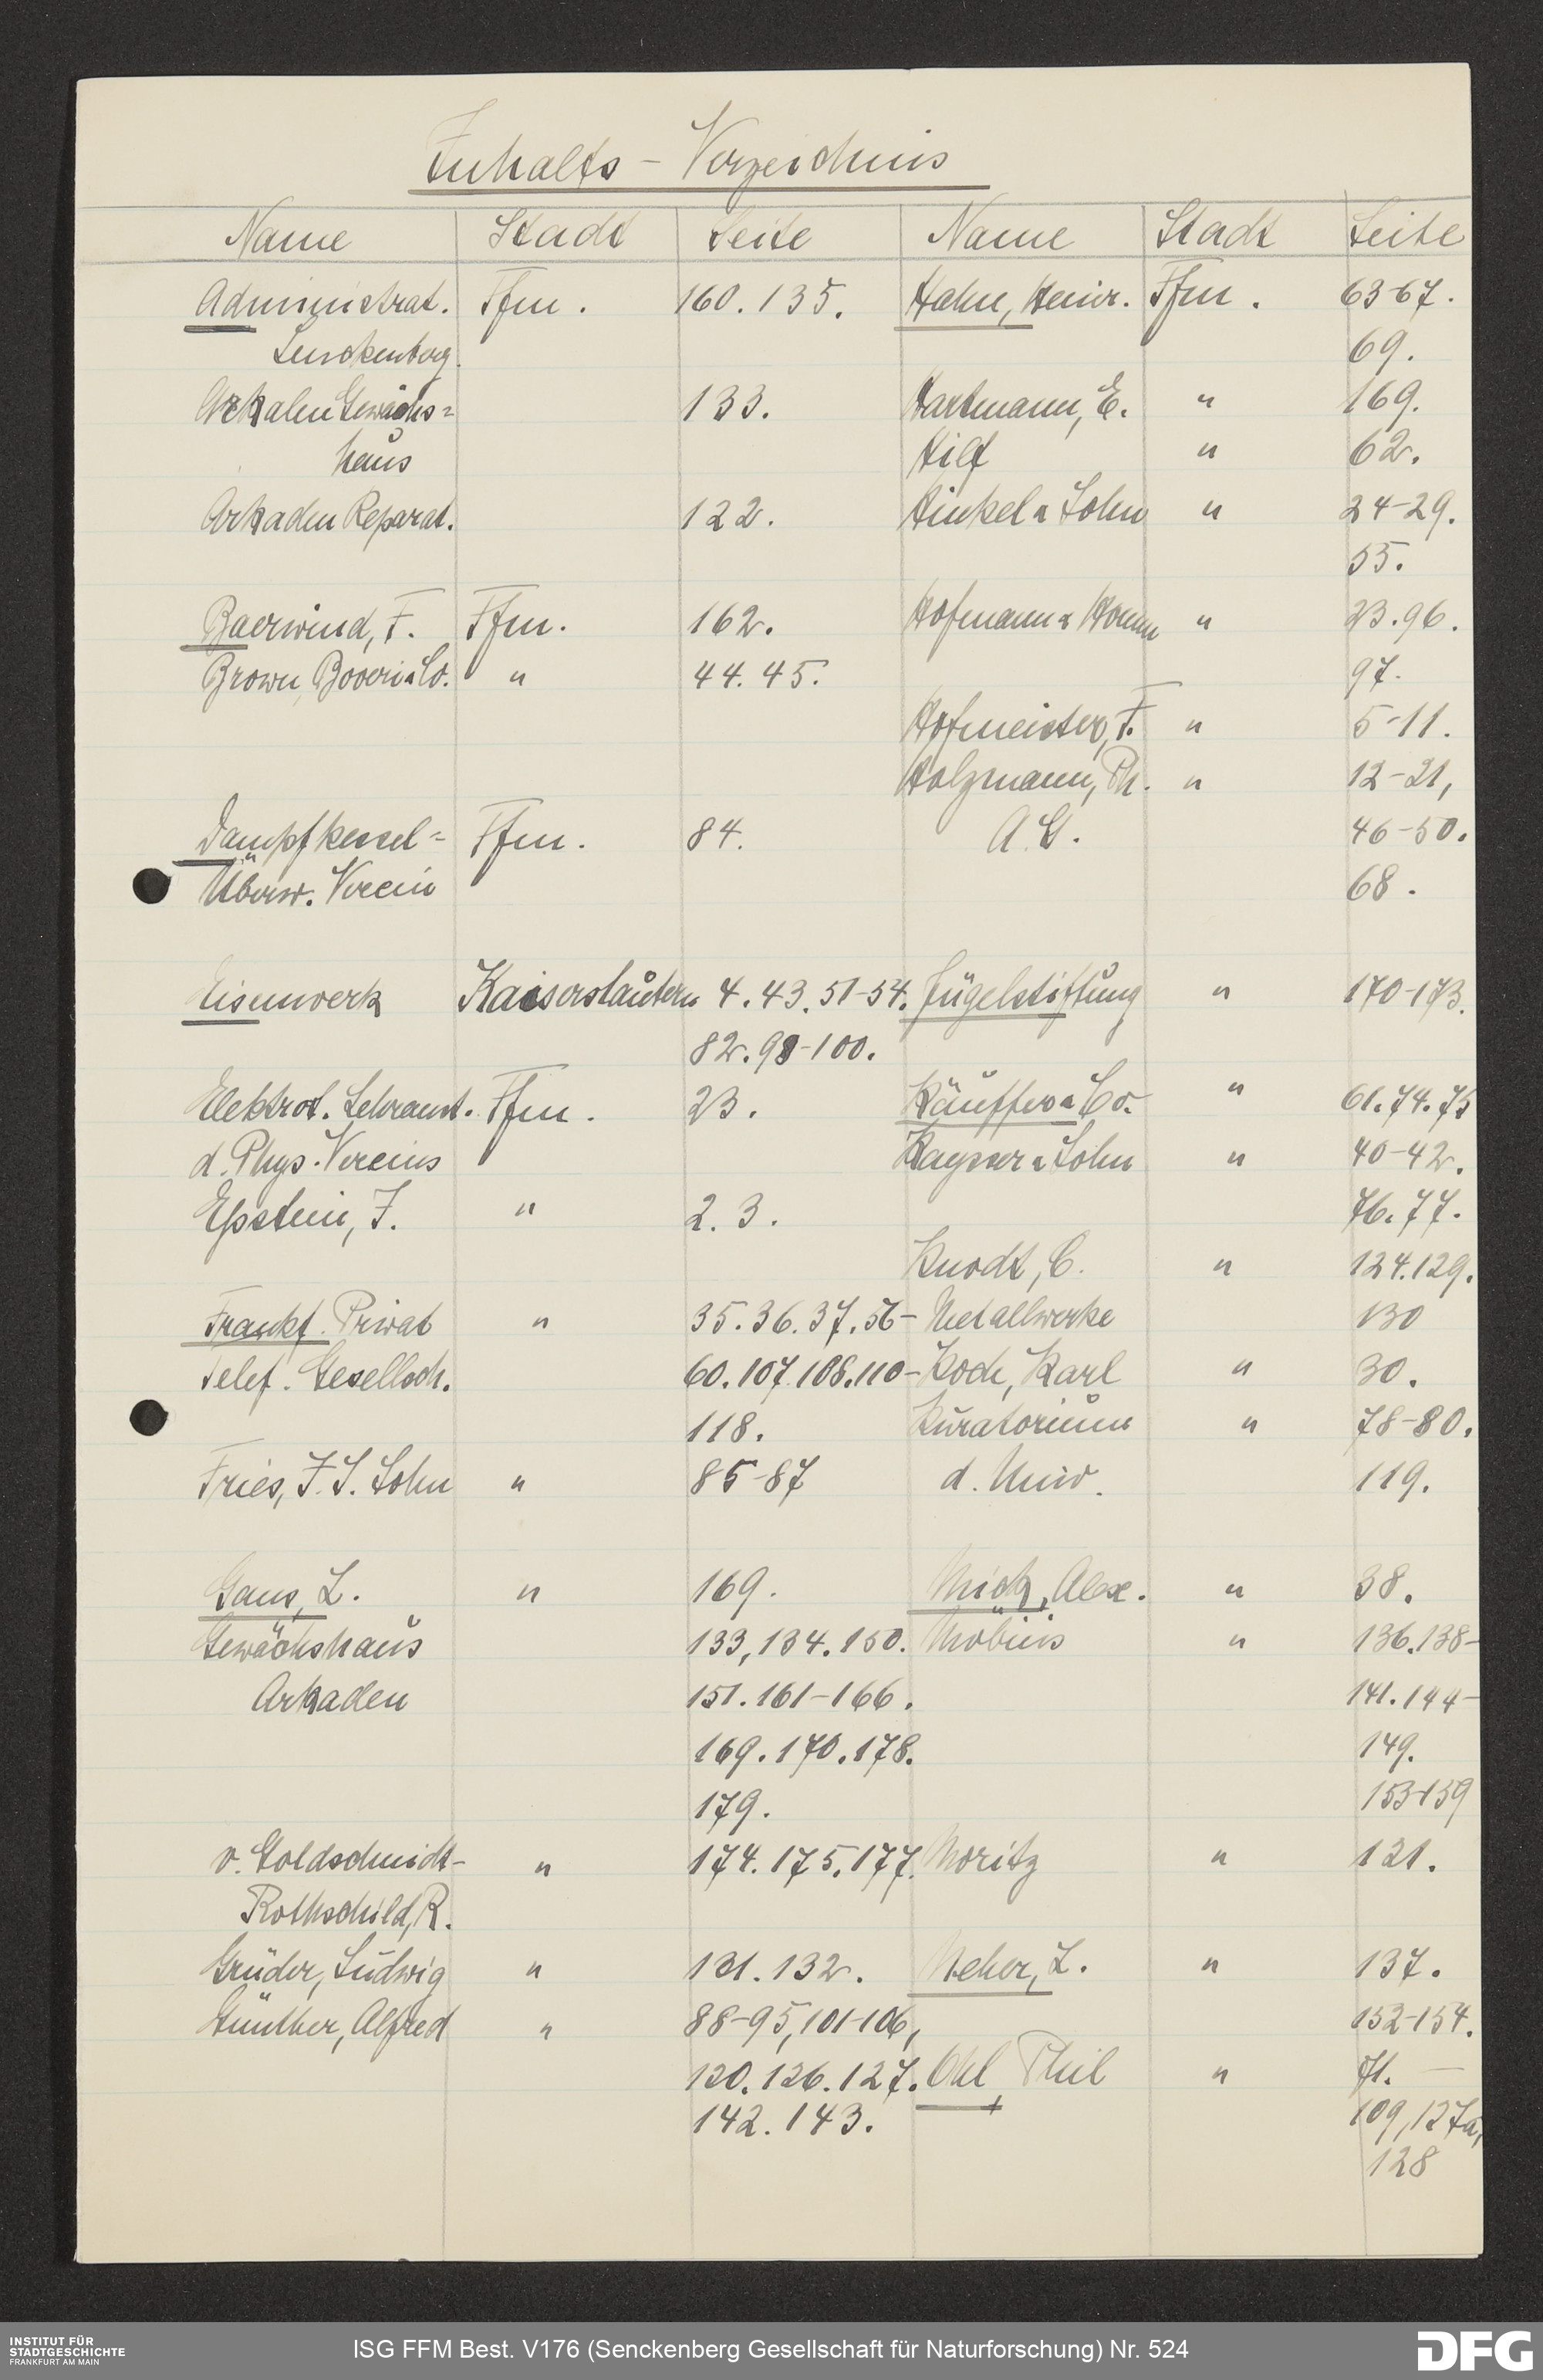 Inhalts - Verzeichnis
Name Stadt Seite
Administrat. Ffm. 160. 135.
Senckenberg.
Arkaden Gewächs= 133.
haus
Arkaden Reparat. 122.
Baerwind, F. Ffm. 162.
Brown, Boveri & Co. " 44. 45.
Dampfkessel= Ffm. 84.
Überw. Verein
Eisenwerk Kaiserslautern 4. 43. 51-54.
82. 98-100.
Elektrot. Lehranst. Ffm. 23.
d. Phys. Vereins
Epstein, J. " 2. 3.
Frankf. Privat " 35. 36. 37. 56-
Telef. Gesellsch. 60. 107. 108. 110-
118.
Fries, J. S. Sohn " 85-87
Gans, L. " 169.
Gewächshaus 133, 134. 150.
Arkaden 151. 161-166.
169. 170. 178.
179.
v. Goldschmidt- " 174. 175. 177.
Rothschild, R.
Grüder, Ludwig " 131. 132.
Günther, Alfred " 88-95, 101-106,
120. 126. 127.
142. 143.
Name Stadt Seite
Hahn, Heinr. Ffm. 63-67.
69.
Hartmann, E. " 169.
Hilf " 62.
Hinkel & Sohn " 24-29.
55.
Hofmann & " 23. 96.
97.
Hofmeister, F. " 5-11.
Holzmann, Ph. " 12-21,
A. G. 46-50.
68.
Jügelstiftung " 170-173.
Käuffer & Co. " 61. 74. 75
Kayser & Sohn " 40-42.
76. 77.
Knodt, C. " 124. 129.
Metallwerke 130
Koch, Karl " 30.
Kuratorium " 78-80.
d. Univ. 119.
Mick, Alex. " 38.
Möbius " 136. 138-
141. 144-
149.
153-159
Moritz " 121.
Neher, L. " 137.
152-154.
Ohl, Phil " 71. —
109, 127a,
128
INSTITUT FÜR
STADTGESCHICHTE
FRANKFURT AM MAIN
ISG FFM Best. V176 (Senckenberg Gesellschaft für Naturforschung) Nr. 524
DFG